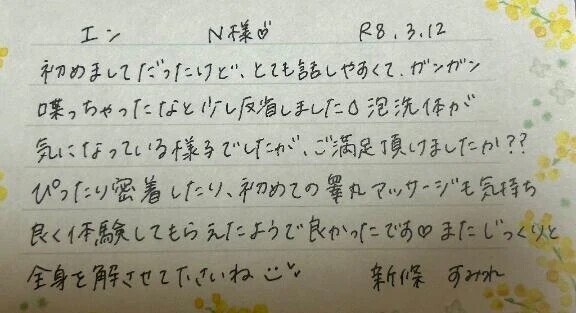 エン N様♡ R8.3.12
初めましてだったけど、とても話しやすくて、ガンガン
喋っちゃったなと少し反省しました💧泡洗体が
気になっている様子でしたが、ご満足頂けましたか??
ぴったり密着したり、初めての睾丸マッサージも気持ち
良く体験してもらえたようで良かったです♡またじっくりと
全身を解させて下さいね 新條 すみれ